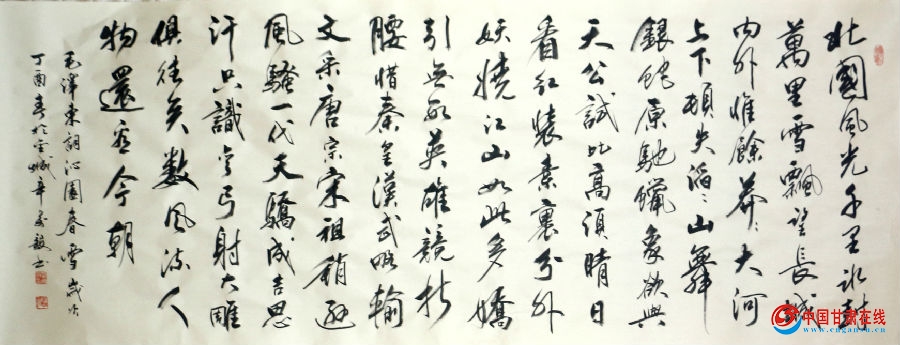 北國風光千里冰封
萬里雪飄望長城
內外惟餘莽〻大河
上下頓失滔〻山舞
銀蛇原馳蠟象欲與
天公試比高須晴日
看紅裝素裹分外
妖嬈江山如此多嬌
引無數英雄競折
腰惜秦皇漢武略輸
文采唐宗宋祖稍遜
風騷一代天驕成吉思
汗只識彎弓射大雕
俱往矣數風流人
物還看今朝
毛澤東詞沁園春雪歲次
丁酉春於金城辛毅書
中国甘肃在线
www.cngansu.cn